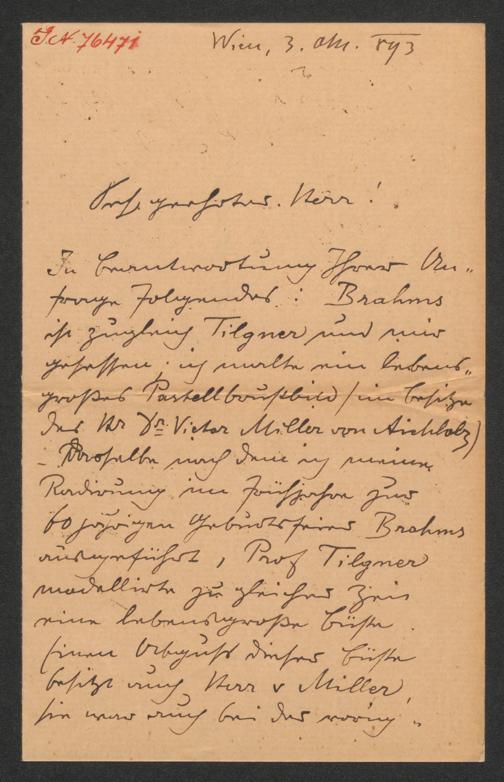 I.N. 76471
Wien, 3. Okt. 893
Sehr geehrter Herr!
In Beantwortung Ihrer An-
frage Folgendes: Brahms
ist zugleich Tilgner und mir
gesessen; ich malte ein lebens-
großes Pastellbrustbild (im Besitze
des Hr Dr. Victor Miller von Aichholz)
- Dasselbe nach dem ich meine
Radirung im Frühjahre zur
60 jährigen Geburtsfeier Brahms
ausgeführt, Prof Tilgner
modellirte zu gleicher Zeit
eine lebensgroße Büste.
Einen Abguß dieser Büste
besitzt auch Herr v Miller,
sie war auch bei der vorig-